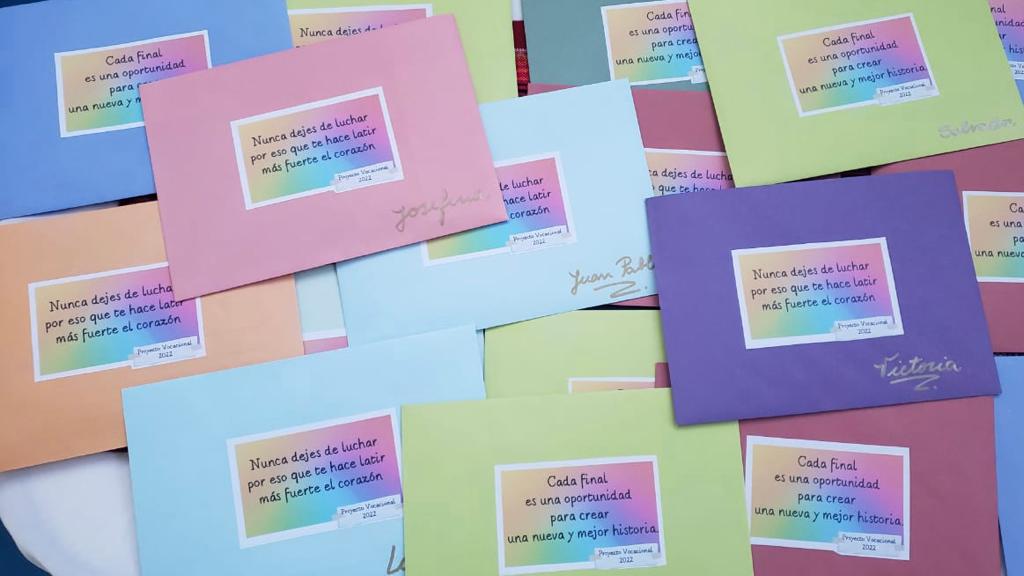 Cada final
es una oportunidad
para
una nueva y
Nunca dejes de
Nunca dejes de luchar
por eso que te hace latir
más fuerte el corazón
Proyecto Vocacional
2022
Josefina
luchar
hace latir
corazón
Proyecto Vocacional
2022
Juan Pablo
Cada
es una
para crear
una nueva y mejor
Cada final
es una oportunidad
para crear
una nueva y mejor historia.
Proyecto Vocacional
2022
Salvador
dejes de luchar
que te hace
Nunca dejes de luchar
por eso que te hace latir
más fuerte el corazón
Proyecto Vocacional
2022
Nunca dejes de luchar
por eso que te hace latir
más fuerte el corazón
Proyecto Vocacional
2022
Victoria
Cada
es una
para
una nueva
Nunca dejes de luchar
por eso que te hace latir
más fuerte el corazón
Proyecto Vocacional
2022
Cada final
es una oportunidad
para crear
una nueva y mejor historia.
Proyecto Vocacional
2022
Cada final
es una oportunidad
para crear
una nueva y mejor historia.
Proyecto Vocacional
2022